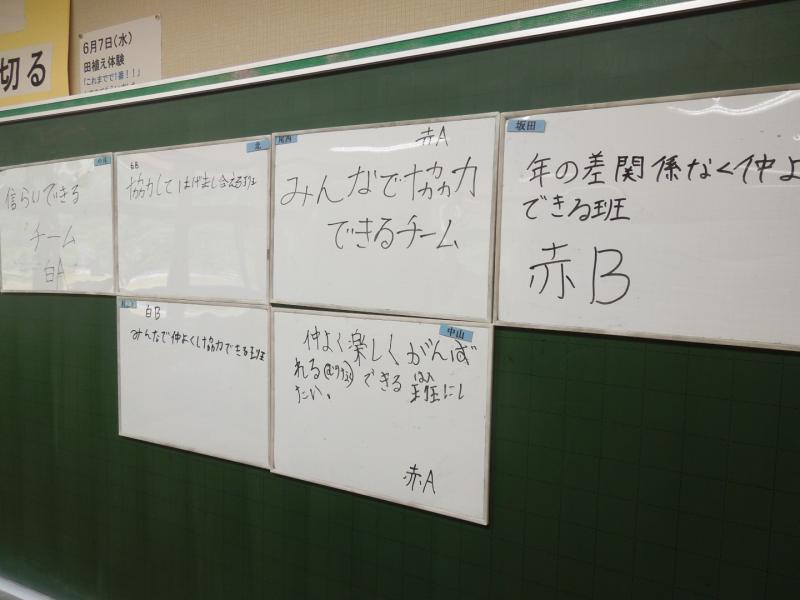 切る
6月7日(水)
田植え体験
「これまでで1番!!」
信らいできる
チーム
白A
北
6B
協力してはげまし合える班
尾西
赤A
みんなで協力
できるチーム
坂田
年の差関係なく仲よ
できる班
赤B
白B
みんなで仲よくし協力できる班
中山
仲よく楽しくがんば
れる できる班にし
はん
たい。
赤A